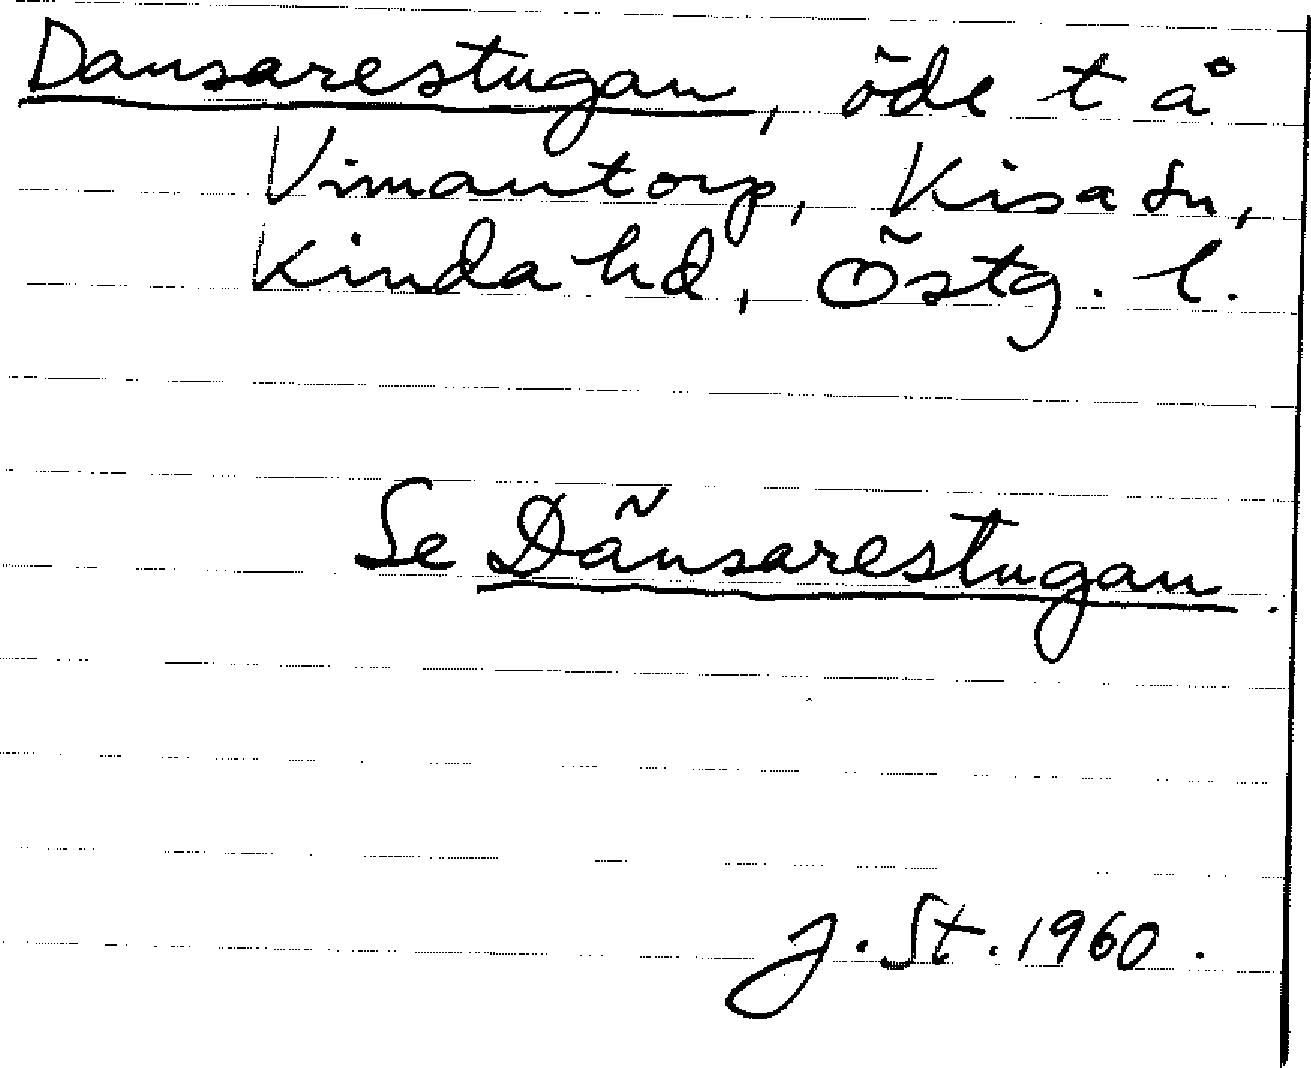 Dansarestugan, öde t å
Vimantorp, Kisa sn,
Kinda hd, Östg. l.
Se Dänsarestugan.
J. St. 1960.